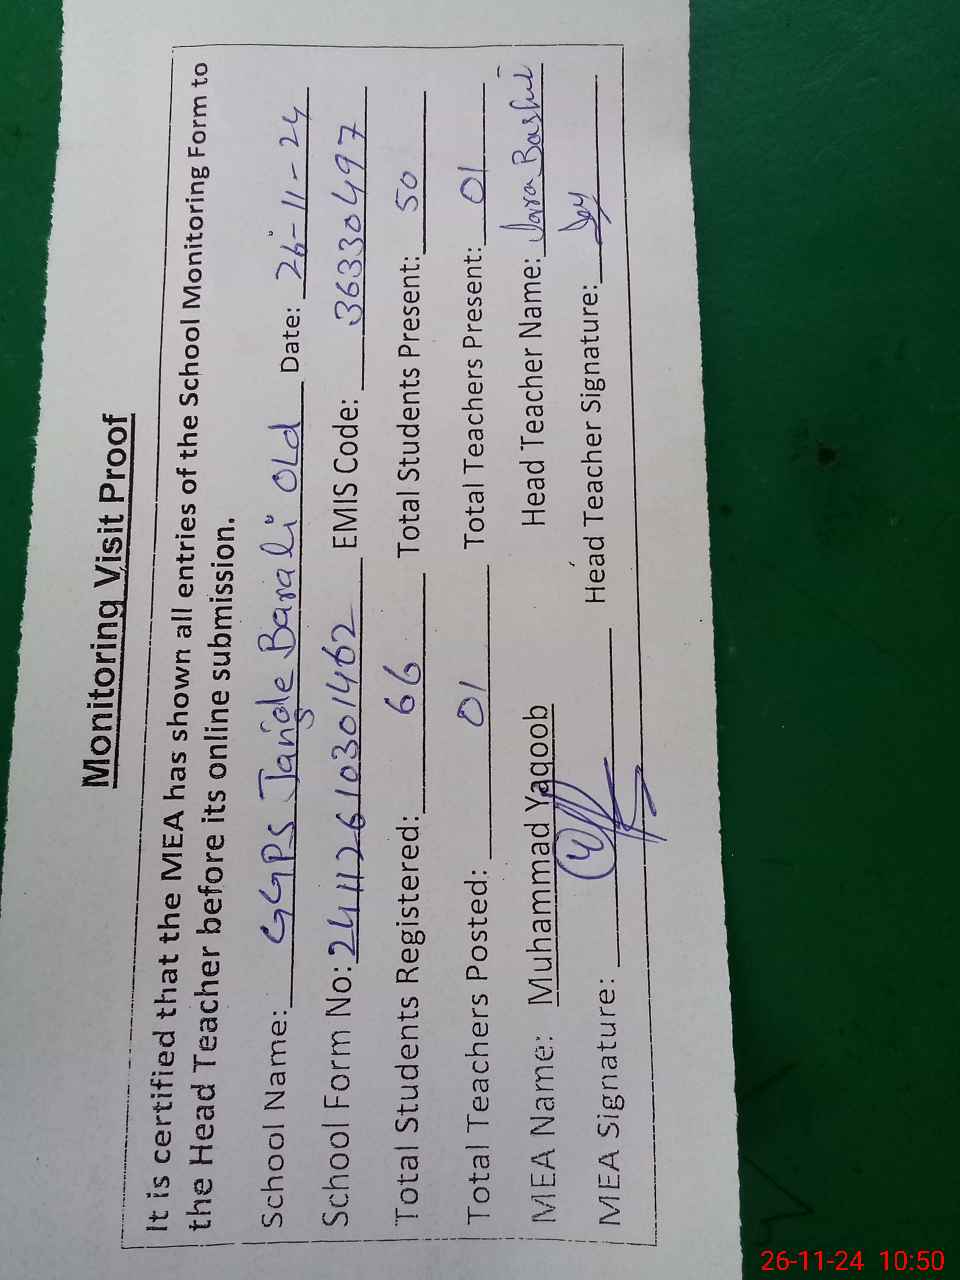 Monitoring Visit Proof
It is certified that the MEA has shown all entries of the School Monitoring Form to
the Head Teacher before its online submission.
School Name: GGPS Jangle Barali OLd Date: 26-11-24
School Form No: 24112610301462 EMIS Code: 36330497
Total Students Registered: 66 Total Students Present: 50
Total Teachers Posted: 01 Total Teachers Present: 01
MEA Name: Muhammad Yaqoob Head Teacher Name: Bashir
MEA Signature: Head Teacher Signature:
26-11-24 10:50